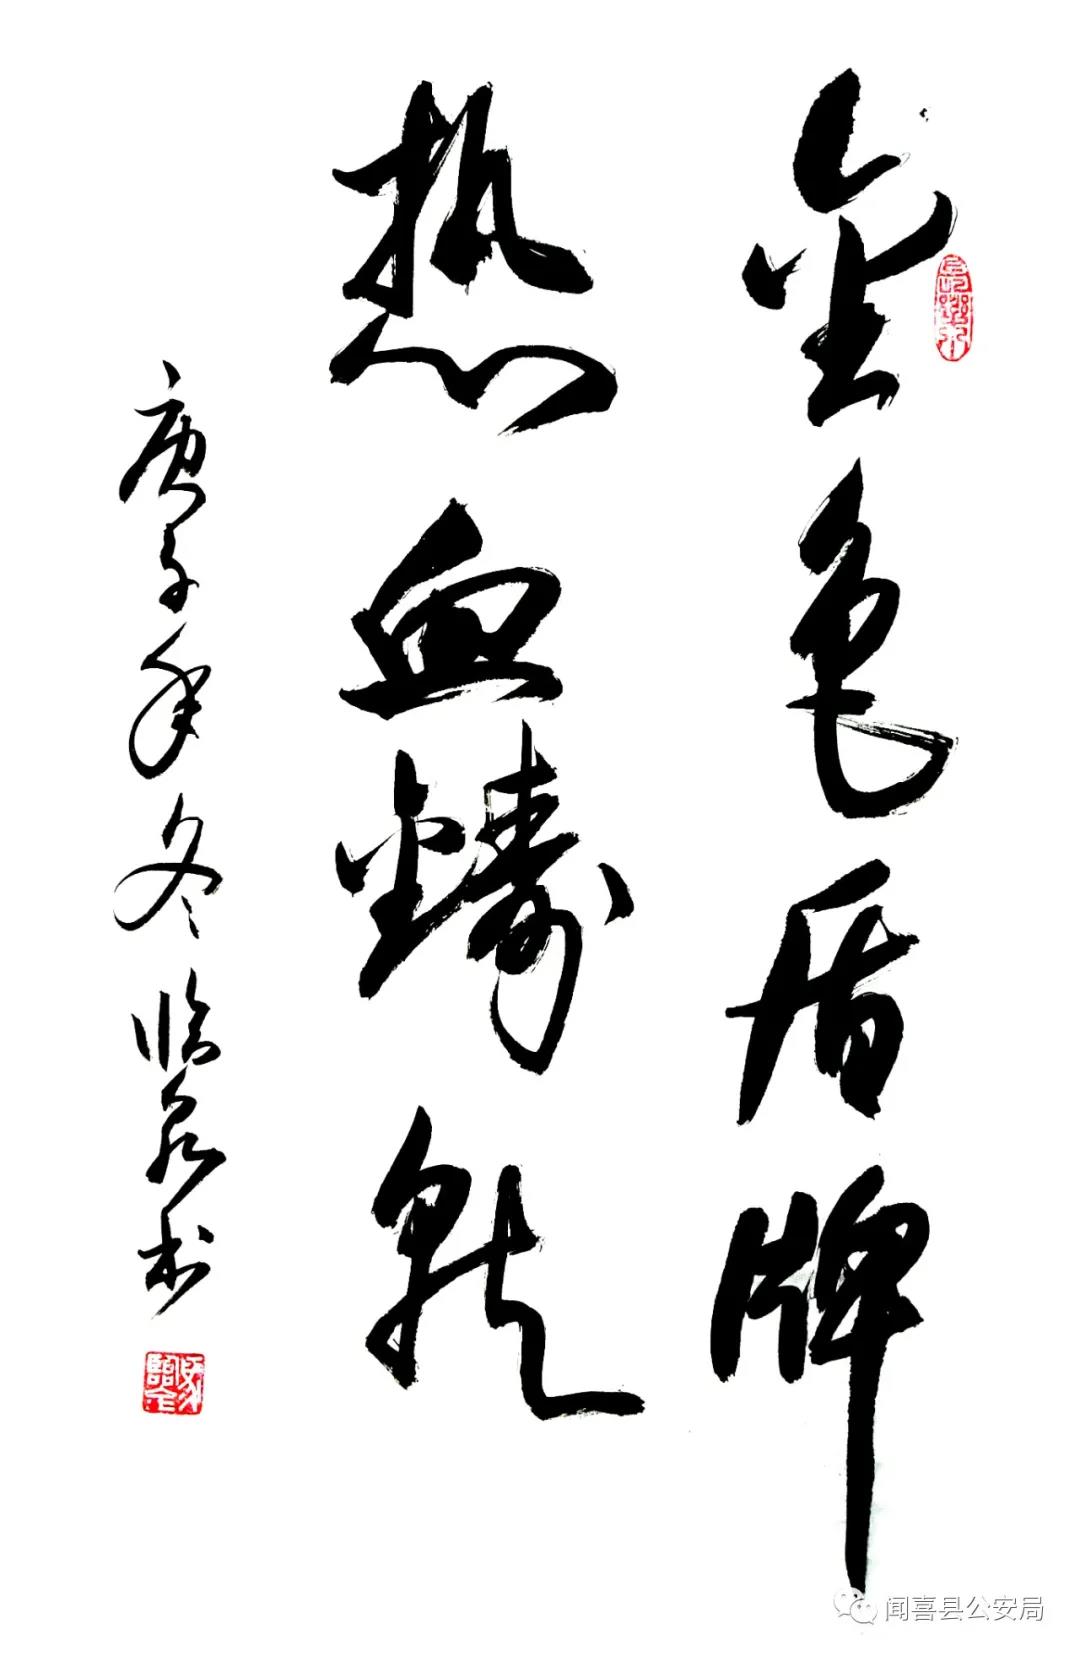 金色盾牌
热血铸就
庚子年冬临泉书
闻喜县公安局